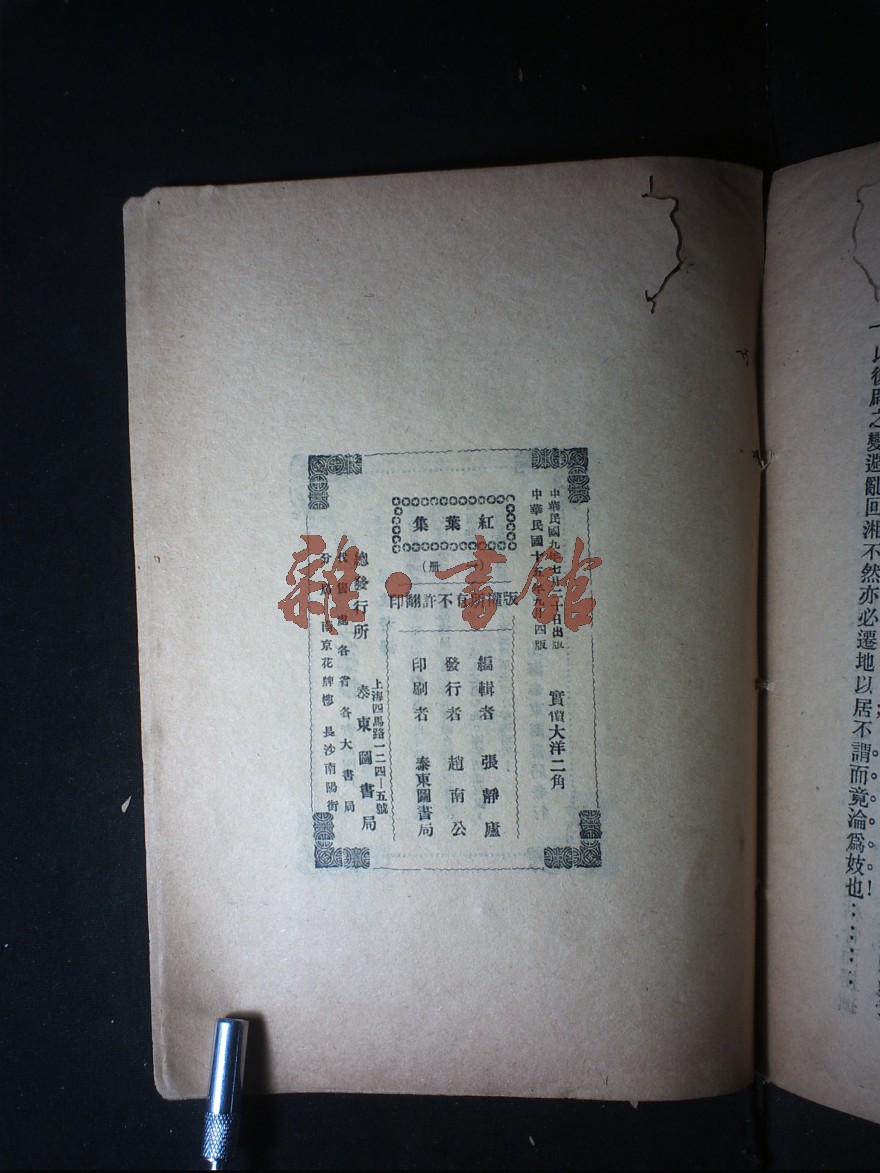 一以後辟之變避亂回湘不然亦必遷地以居不謂而竟淪爲妓也！……
中華民國九年七月二十日出版
中華民國十五年九月四版
實價大洋二角
紅葉集
（一册）
版權所有不許翻印
編輯者　張靜廬
發行者　趙南公
印刷者　泰東圖書局
上海四馬路一二四—五號
總發行所　泰東圖書局
代售處各省各大書局
分　南京花牌樓　長沙南陽街
雜·書館